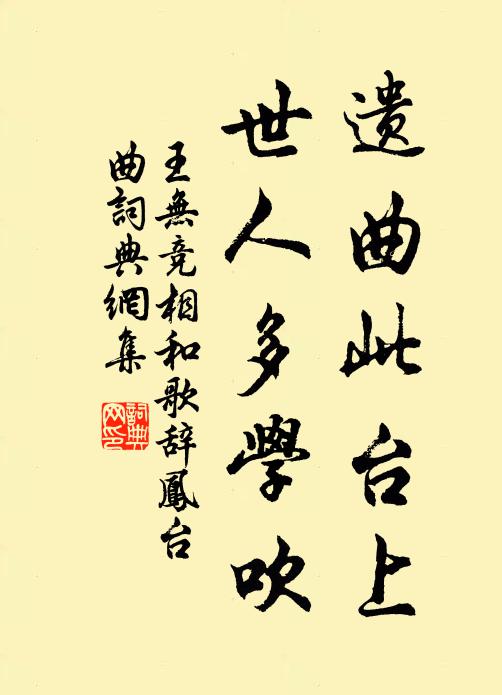 遗曲此台上
世人多學吹
王無竞相和歌辞鳳台
曲詞典網集
詞典
网印